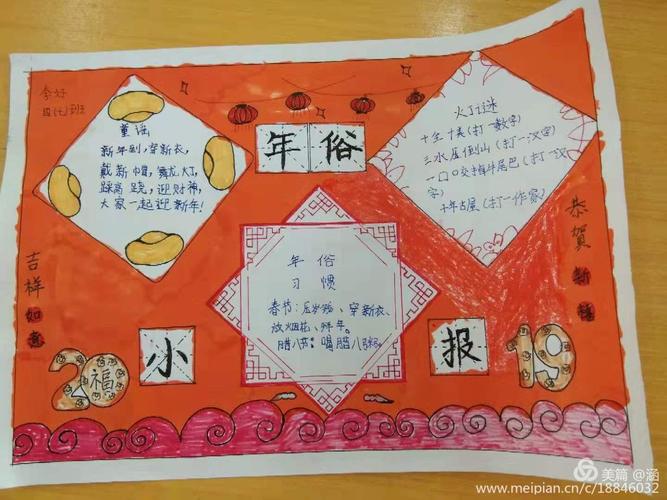 李好
四(七)班
童谣
新年到,穿新衣,
戴新帽,舞龙灯,
踩高跷,迎财神,
大家一起迎新年!
年俗
灯谜
十全十美(打一数字)
三水压倒山(打一汉字
一口咬掉牛尾巴(打一汉
字)
十年古屋(打一作家)
吉祥如意
恭贺新禧
年俗
习惯
春节:压岁钱、穿新衣、
放烟花、拜年。
腊八节:喝腊八粥。
小报
20
福
19
美篇 @涵
www.meipian.cn/c/18846032